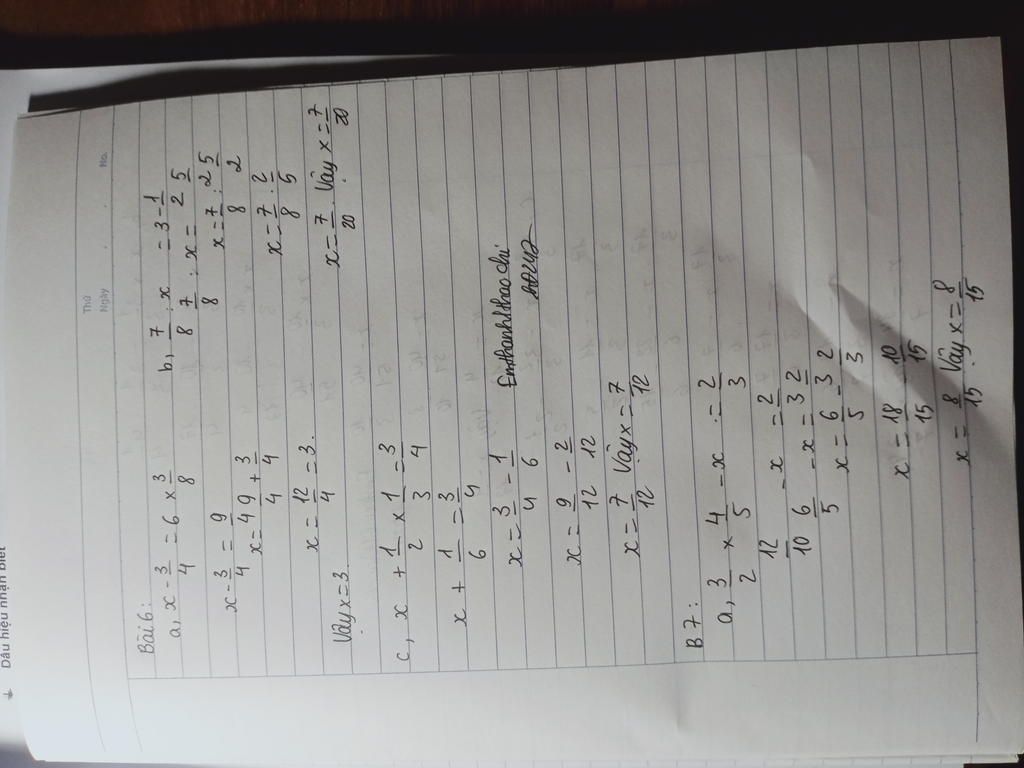 Dấu hiệu nhận biết
Thứ
Ngày
No.
Bài 6:
a, x - 3/4 = 6 x 3/8
x - 3/4 = 9/4
x = 9/4 + 3/4
x = 12/4 = 3.
Vậy x = 3
b, 7/8 : x = 3 - 1/2
7/8 : x = 5/2
x = 7/8 : 5/2
x = 7/8 . 2/5
x = 7/20 . Vậy x = 7/20
c, x + 1/2 x 1/3 = 3/4
x + 1/6 = 3/4
x = 3/4 - 1/6
x = 9/12 - 2/12
x = 7/12 Vậy x = 7/12
B7:
a, 3/2 x 4/5 - x = 2/3
12/10 - x = 2/3
6/5 - x = 2/3
x = 6/5 - 2/3
x = 18/15 - 10/15
x = 8/15 Vậy x = 8/15